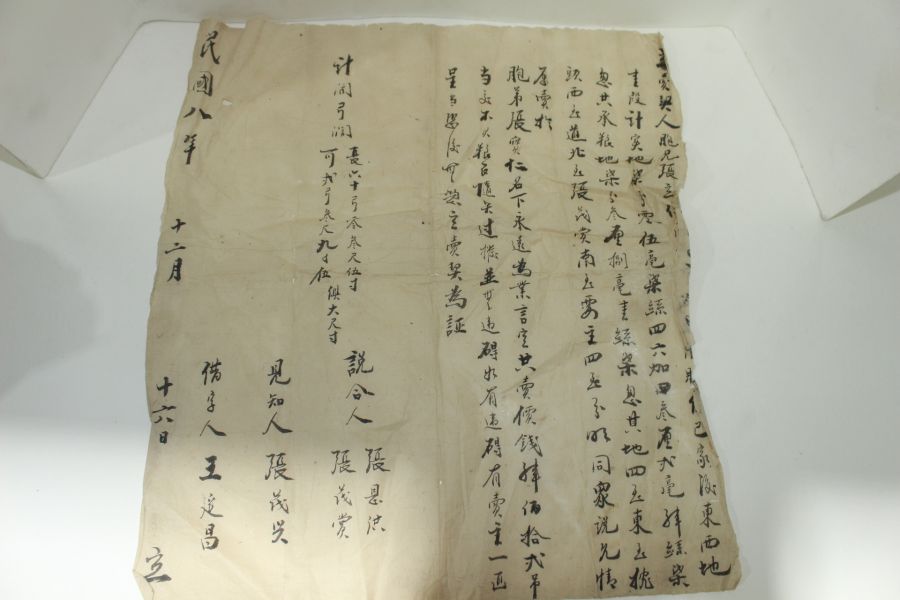 立賣契人胞兄張立 己家後東西地
壹段計實地柒分零伍毫柒絲四六加田叁厘弍毫肆絲柒
忽共承粮地柒分叁厘捌毫壹絲柒忽其地四至東至
頭西至道北至張茂賞南至要主四至分明同衆說允情
愿賣於
胞弟張實仁名下永遠為業言定共賣價錢肆佰拾弍吊
当交不欠粮名隨券过撥並無违碍如有违碍有賣主一面
呈当恐後無憑立賣契為証
計開弓濶 長六十弓零叁尺伍寸
可弍弓叁尺九寸伍 俱大尺寸
說合人 張恩洪
張茂賞
見知人 張茂兴
借字人 王延昌
民國八年 十二月 十六日 立